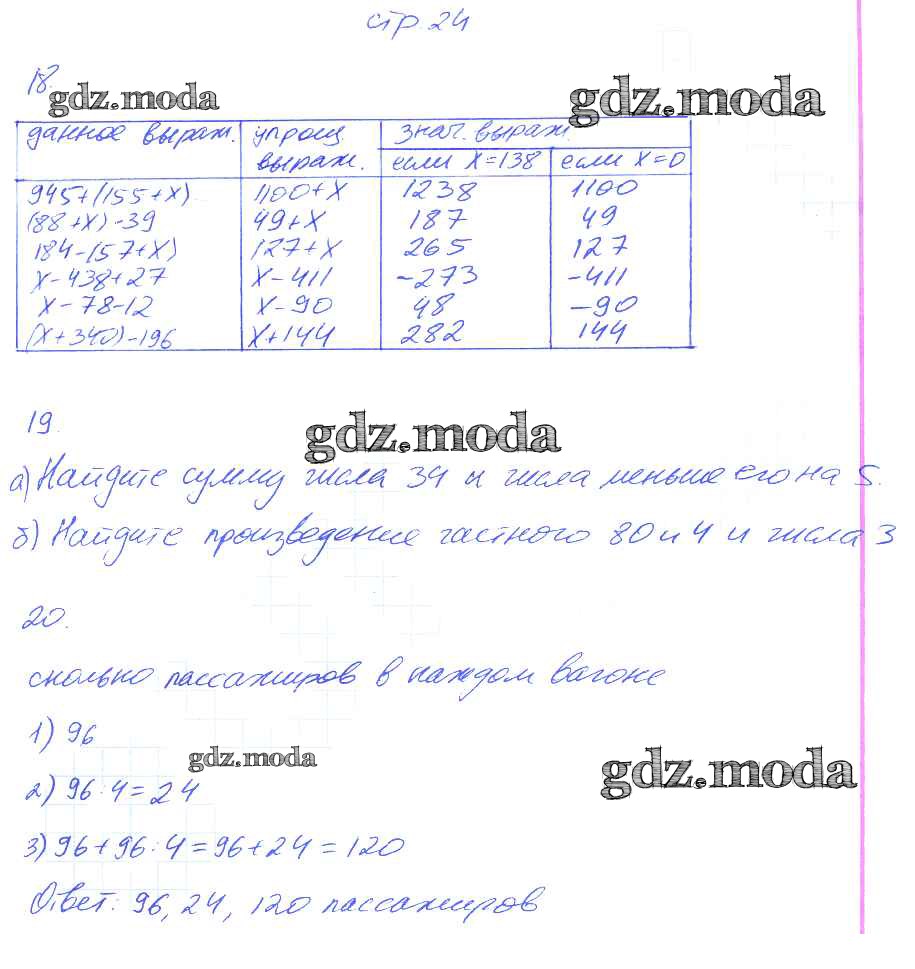 стр. 24
18.
gdz.moda gdz.moda
данное выраж. упрощ. выраж. знач. выраж.
если X=138 если X=0
945+(155+X) 1100+X 1238 1100
(88+X)-39 49+X 187 49
184-(57+X) 127+X 265 127
X-438+27 X-411 -273 -411
X-78-12 X-90 48 -90
(X+340)-196 X+144 282 144
19.
gdz.moda
а) Найдите сумму числа 34 и числа меньше его на 5.
б) Найдите произведение частного 80 и 4 и числа 3
20.
сколько пассажиров в каждом вагоне
1) 96
gdz.moda gdz.moda
2) 96:4=24
3) 96+96:4=96+24=120
Ответ: 96, 24, 120 пассажиров